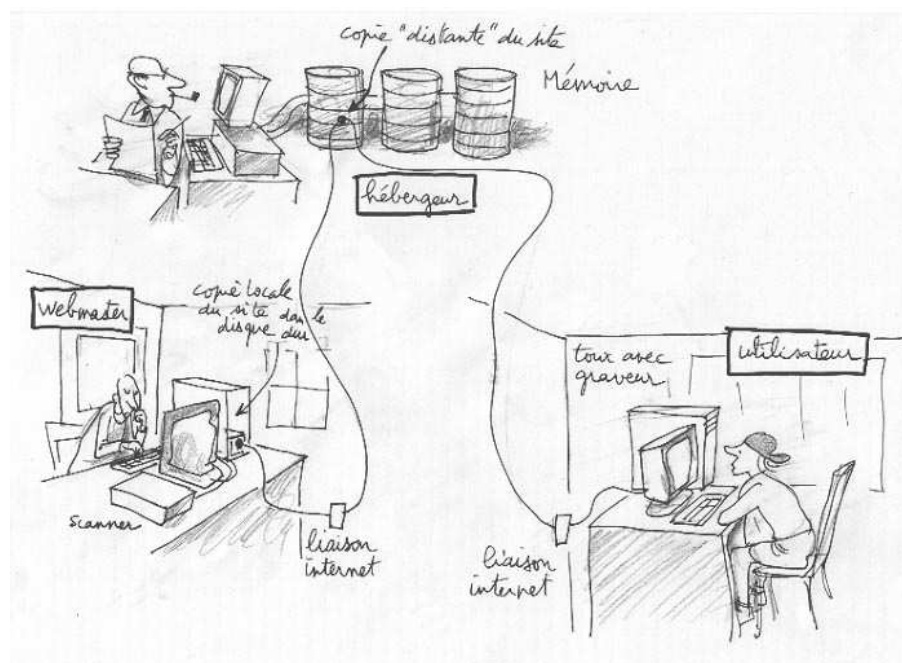 copie "distante" du site
Mémoire
hébergeur
webmaster
copie locale
du site dans le
disque dur
scanner
liaison
internet
tour avec
graveur
utilisateur
liaison
internet